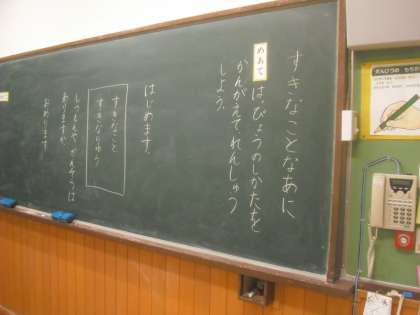 すきなことなあに
めあて
はっぴょうのしかたを
かんがえて、れんしゅう
しよう。
はじめます。
すきなこと
すきなりゆう
しつもんや、かんそうは
ありますか。
おわります。
えんぴつの もちか